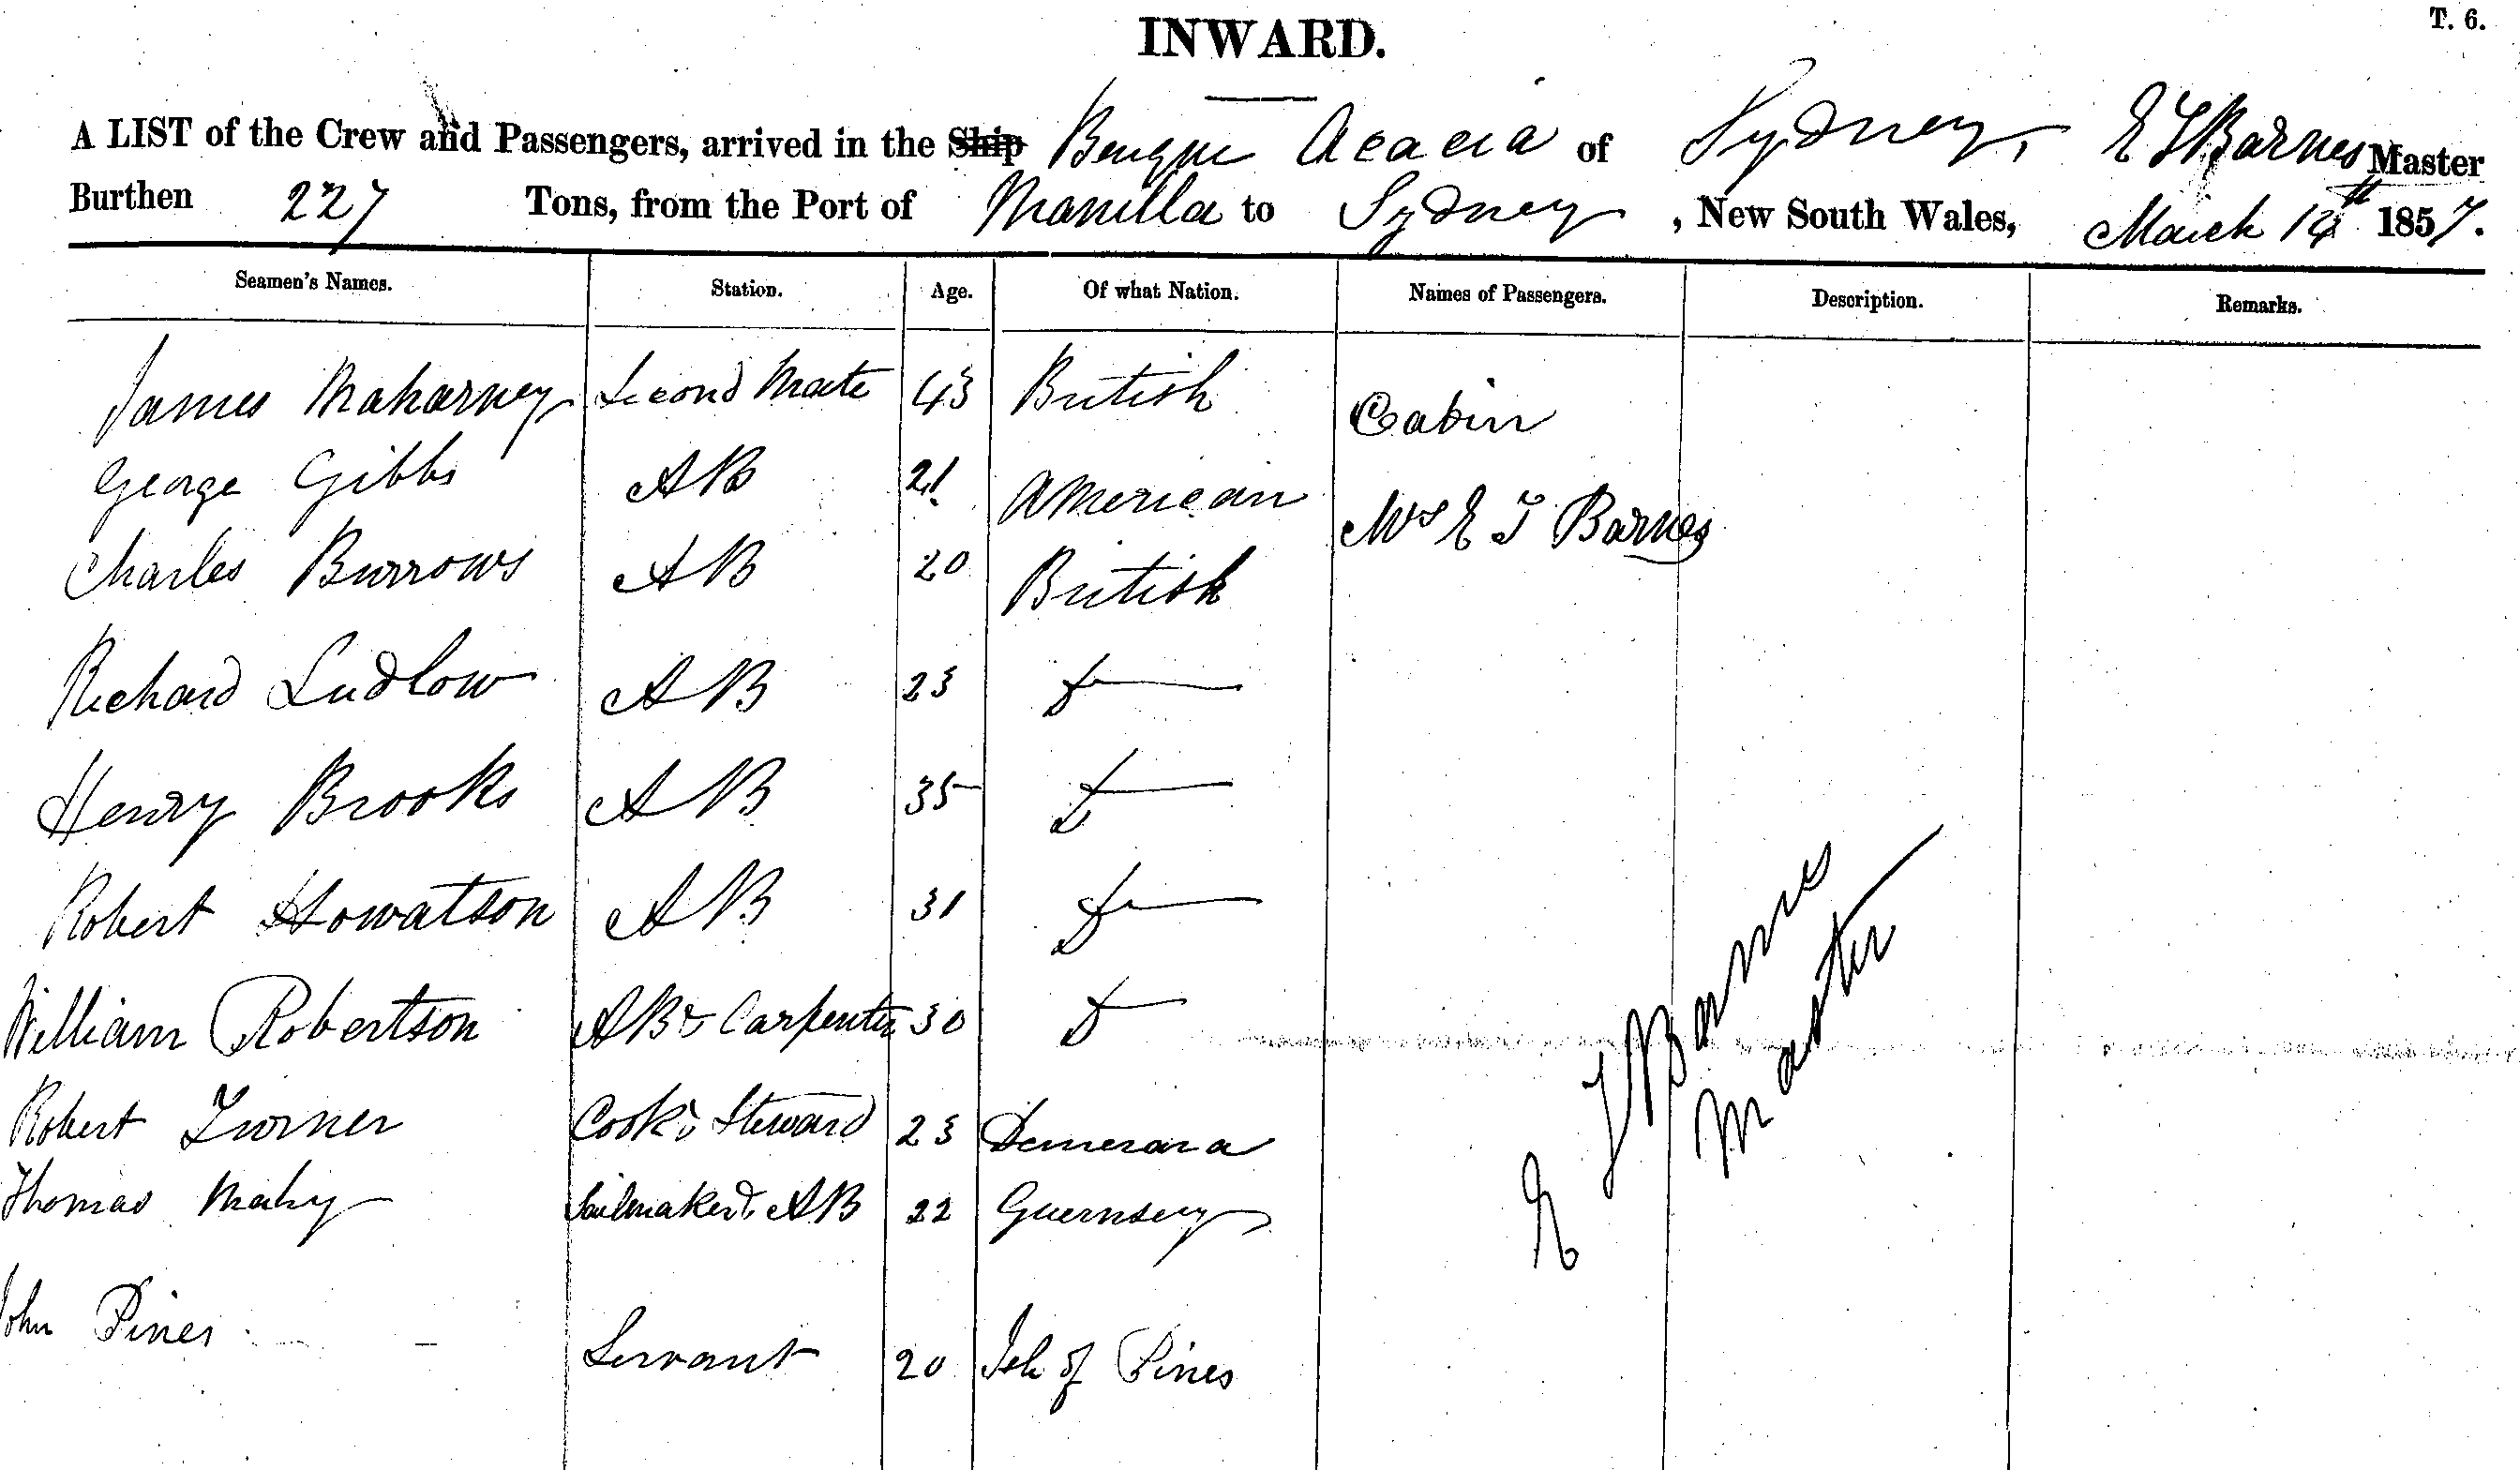 T. 6.
INWARD.
A LIST of the Crew and Passengers, arrived in the Ship Barque Acacia of Sydney, E T Barnes Master
Burthen 227 Tons, from the Port of Manilla to Sydney, New South Wales, March 14th 1857.
Seamen's Names. Station. Age. Of what Nation. Names of Passengers. Description. Remarks.
James Maharney Second Mate 43 British Cabin
George Gibbs AB 21 American Mrs E T Barnes
Charles Burrows AB 20 British
Richard Ludlow AB 23 D
Henry Brooks AB 35 D
Robert Howatson AB 31 D
William Robertson AB & Carpenter 30 D
Robert Turner Cook & Steward 23 Demerara
Thomas Mahy Sailmaker & AB 22 Guernsey
John Pines Servant 20 Isle of Pines
E T Barnes
Master